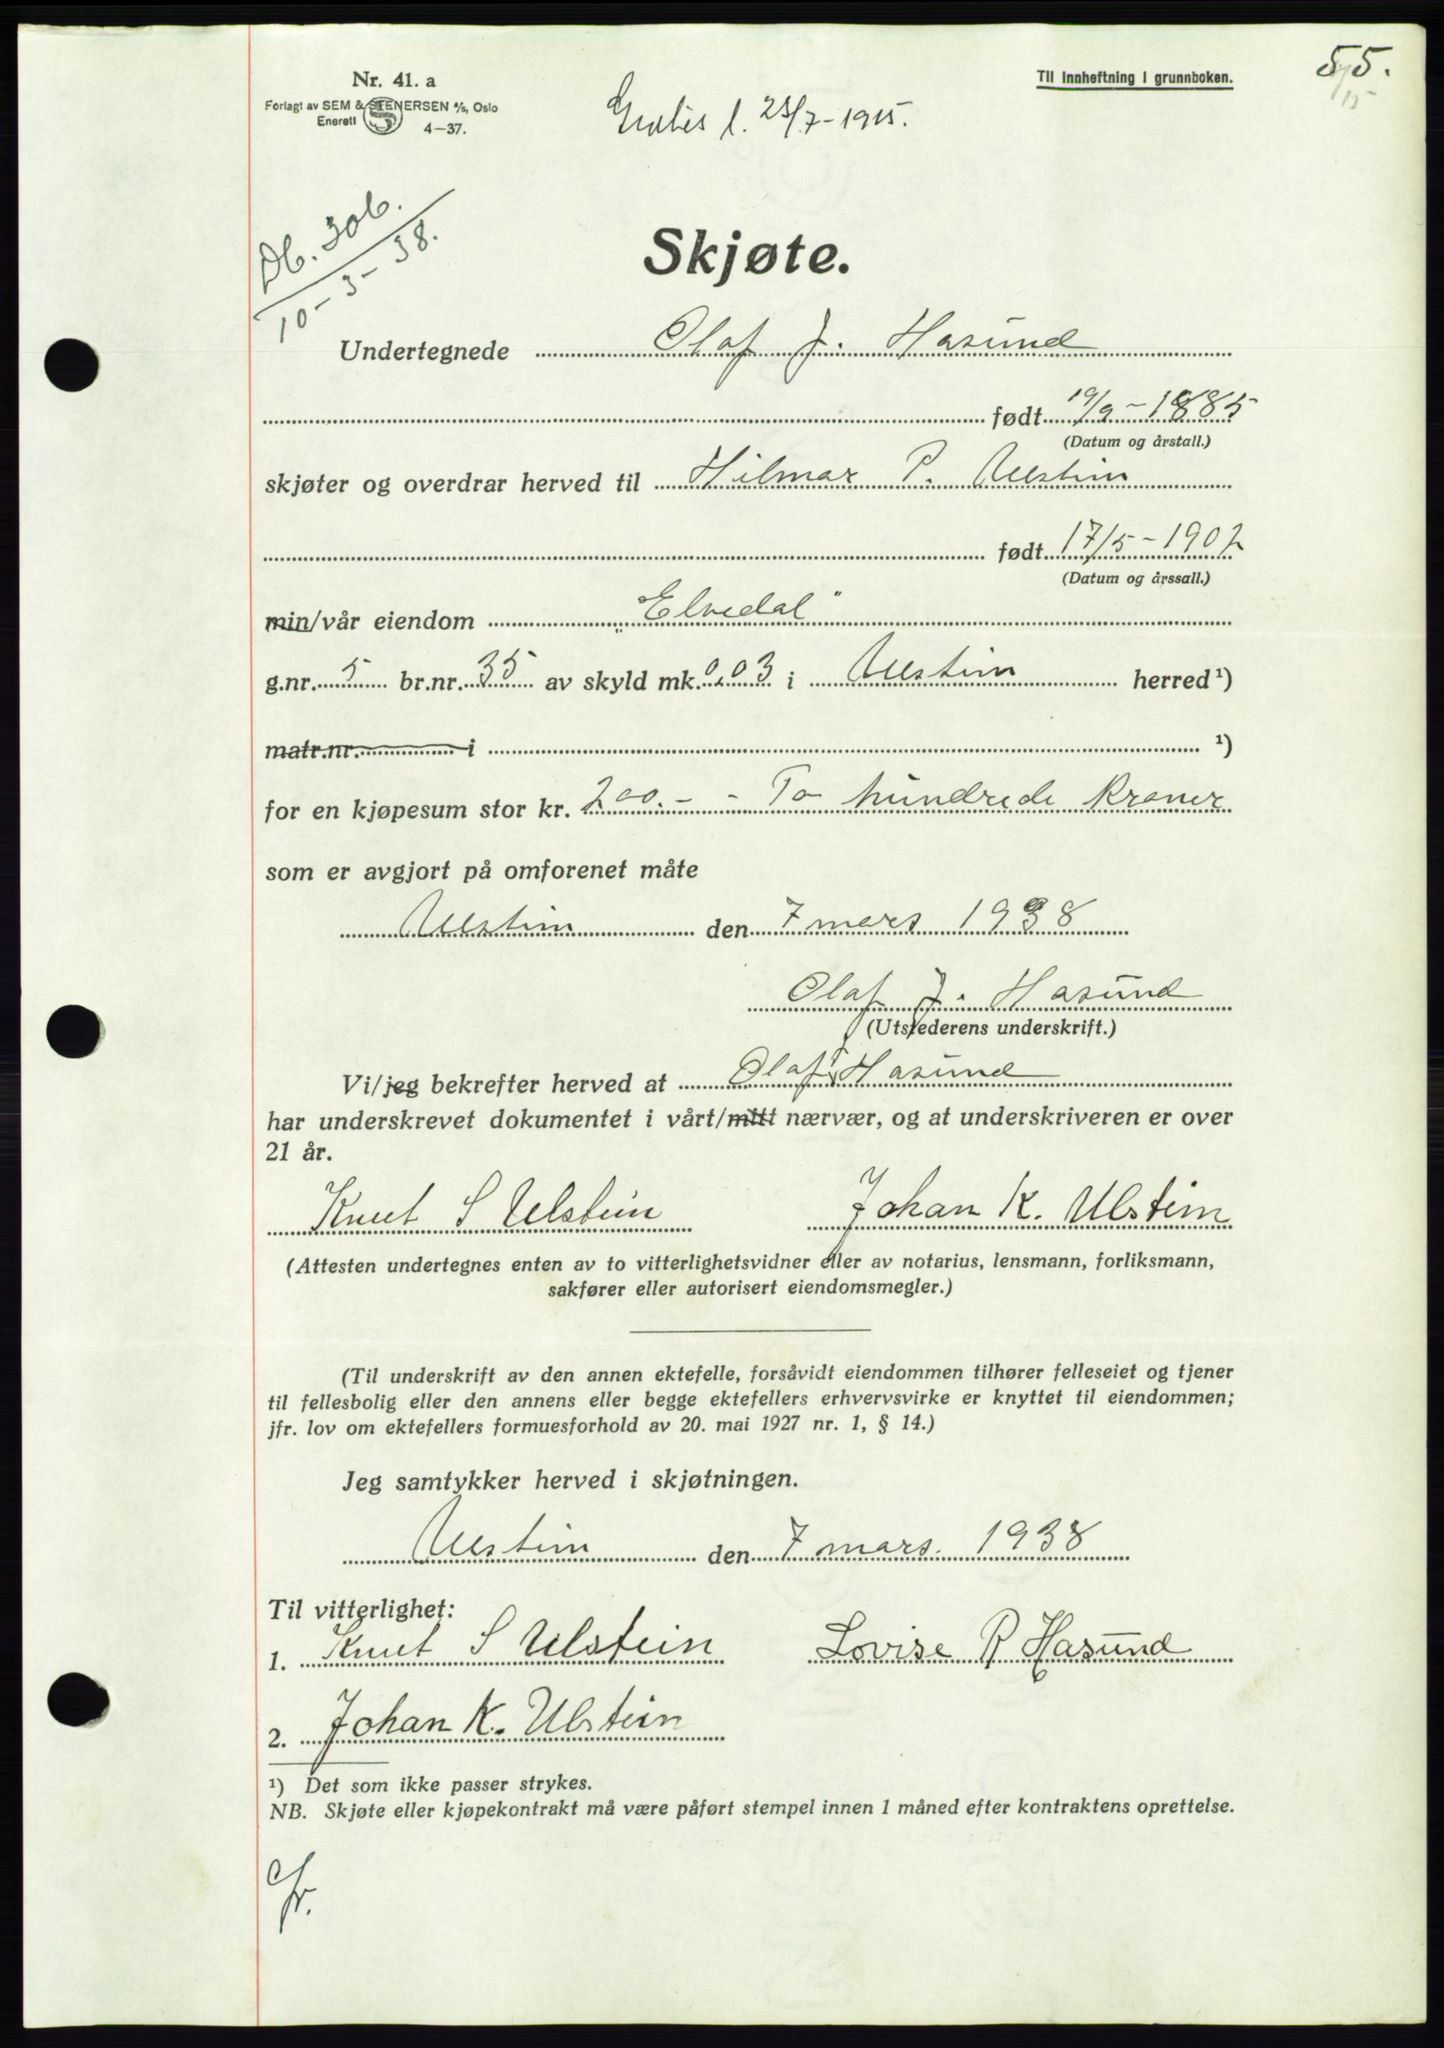 Nr. 41. a
Til innheftning i grunnboken.
55.
Forlagt av SEM & STENERSEN A/S, Oslo
Enerett
4-37.
23/7-1915.
Db. 306.
10-3-38.
Skjøte.
Undertegnede Olaf J. Hasund
født 19/9-1885
(Datum og årstall.)
skjøter og overdrar herved til Hilmar P. Ulstein
født 17/5-1907
(Datum og årssall.)
min/vår eiendom „Elvedal"
g.nr. 5 br.nr. 35 av skyld mk. 0.03 i Ulstein herred¹)
matr.nr. i ¹)
for en kjøpesum stor kr. 200.- - To hundrede kroner
som er avgjort på omforenet måte
Ulstein den 7 mars 1938
Olaf J. Hasund
(Utstederens underskrift.)
Vi/jeg bekrefter herved at Olaf J. Hasund
har underskrevet dokumentet i vårt/mitt nærvær, og at underskriveren er over
21 år.
Knut S Ulstein Johan K. Ulstein
(Attesten undertegnes enten av to vitterlighetsvidner eller av notarius, lensmann, forliksmann,
sakfører eller autorisert eiendomsmegler.)
(Til underskrift av den annen ektefelle, forsåvidt eiendommen tilhører felleseiet og tjener
til fellesbolig eller den annens eller begge ektefellers erhvervsvirke er knyttet til eiendommen;
jfr. lov om ektefellers formuesforhold av 20. mai 1927 nr. 1, § 14.)
Jeg samtykker herved i skjøtningen.
Ulstein den 7 mars. 1938
Til vitterlighet:
1. Knut S Ulstein Lovise R Hasund
2. Johan K. Ulstein
¹) Det som ikke passer strykes.
NB. Skjøte eller kjøpekontrakt må være påført stempel innen 1 måned efter kontraktens oprettelse.